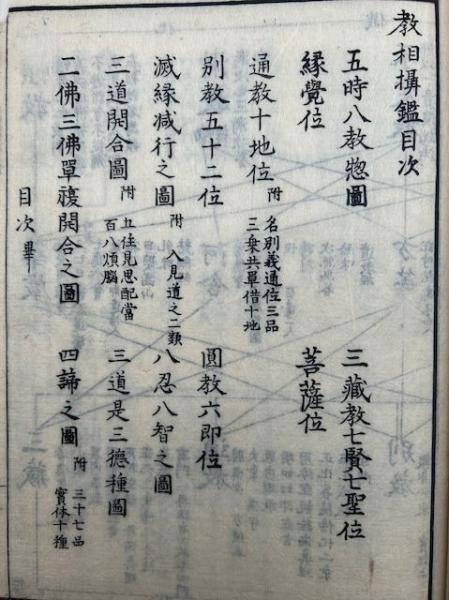 教相攝鑑目次
五時八教惣圖
三藏教七賢七聖位
緣覺位
菩薩位
通教十地位 附 名別義通位三品 三乗共單借十地
別教五十二位
圓教六即位
滅緣減行之圖 附 入見道之二類
八忍八智之圖
三道開合圖 附 五住見思配當 百八煩腦
三道是三德種圖
二佛三佛單複開合之圖
四諦之圖 附 三十七品 實体十種
目次畢